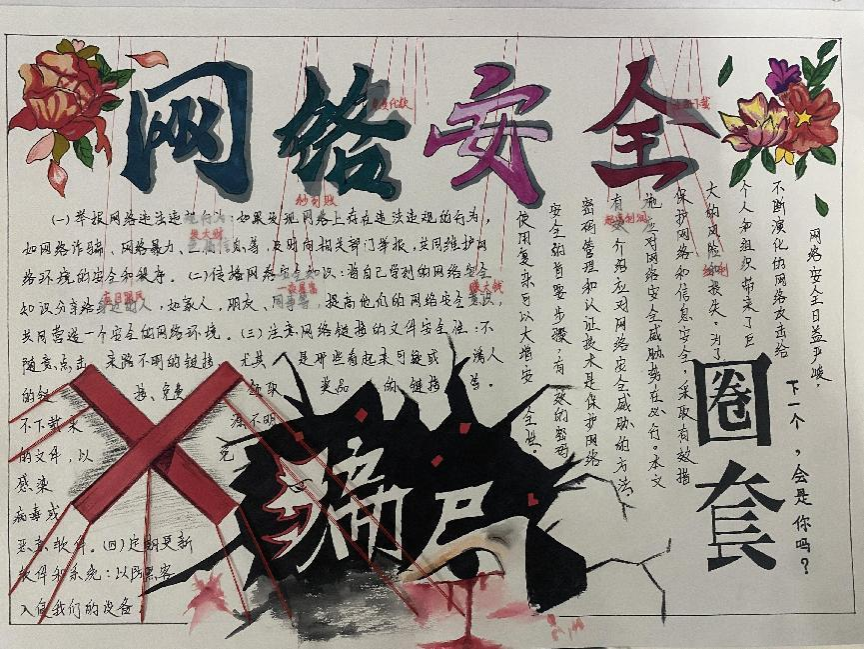 网络安全
(一)举报网络违法违规行为:如果发现网络上存在违法违规的行为,
如网络诈骗、网络暴力、信息等,及时向相关部门举报,共同维护网
络环境的安全和秩序。(二)传播网络安全知识:将自己学到的网络安全
知识分享给身边的人,如家人、朋友、同事等,提高他们的网络安全意识,
共同营造一个安全的网络环境。(三)注意网络链接的文件安全性:不
随意点击 来路不明的链接, 尤其 是那些看起来可疑或 诱人
的链 接、免费 领取 奖品 的链接 等。
不下载来 源不明
的文件,以 免
感染
病毒或
恶意软件。(四)定期更新
软件和系统:以防黑客
入侵我们的设备。
网络安全日益严峻,
不断演化的网络攻击给
个人和组织带来了巨
大的风险和损失。为了
保护网络和信息安全,采取有效措
施应对网络安全威胁势在必行。本文
有 介绍应对网络安全威胁的方法
密码管理和认证技术是保护网络
安全的首要步骤,有效的密码
使用复杂可以大增安 全性。
圈套
下一个,会是你吗?
骗局